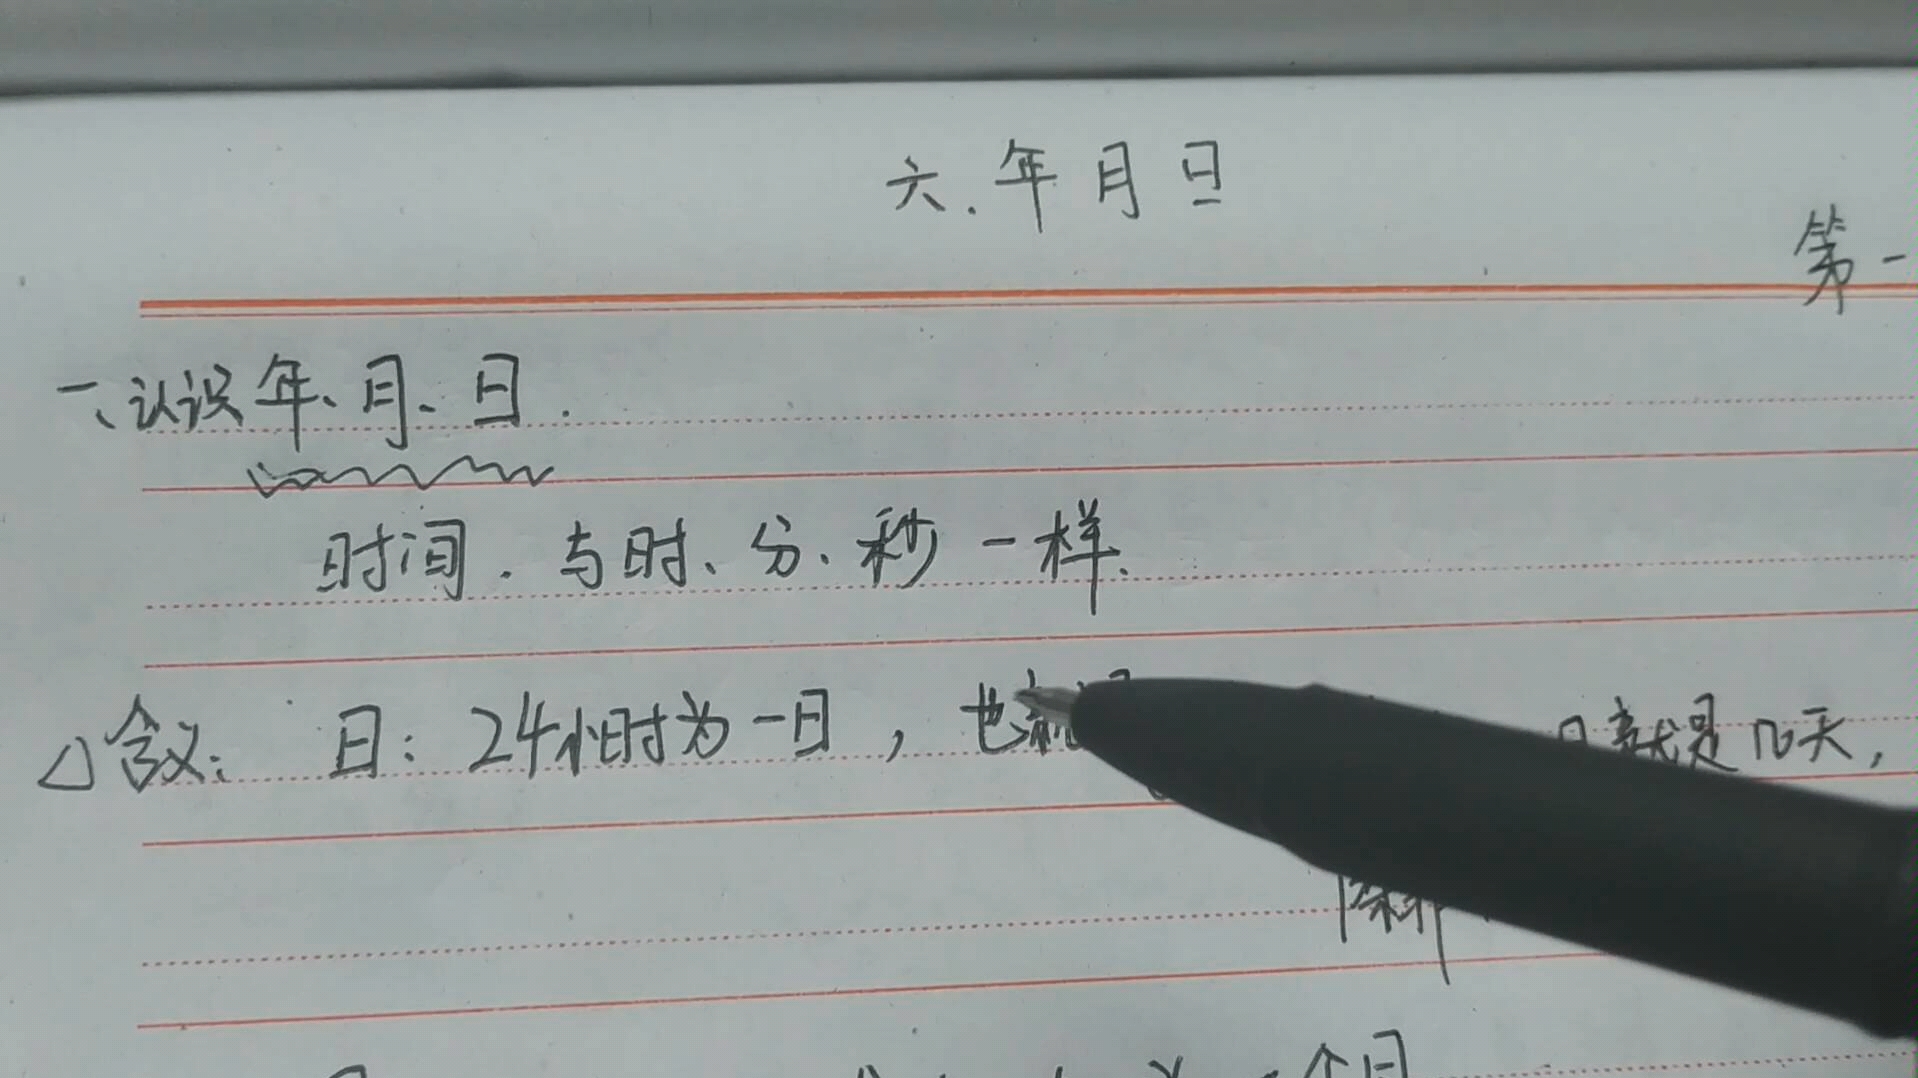 六.年月日
第一
一、认识年、月、日.
时间.与时、分、秒一样.
△含义: 日: 24小时为一日,也就是 日就是几天,
个月